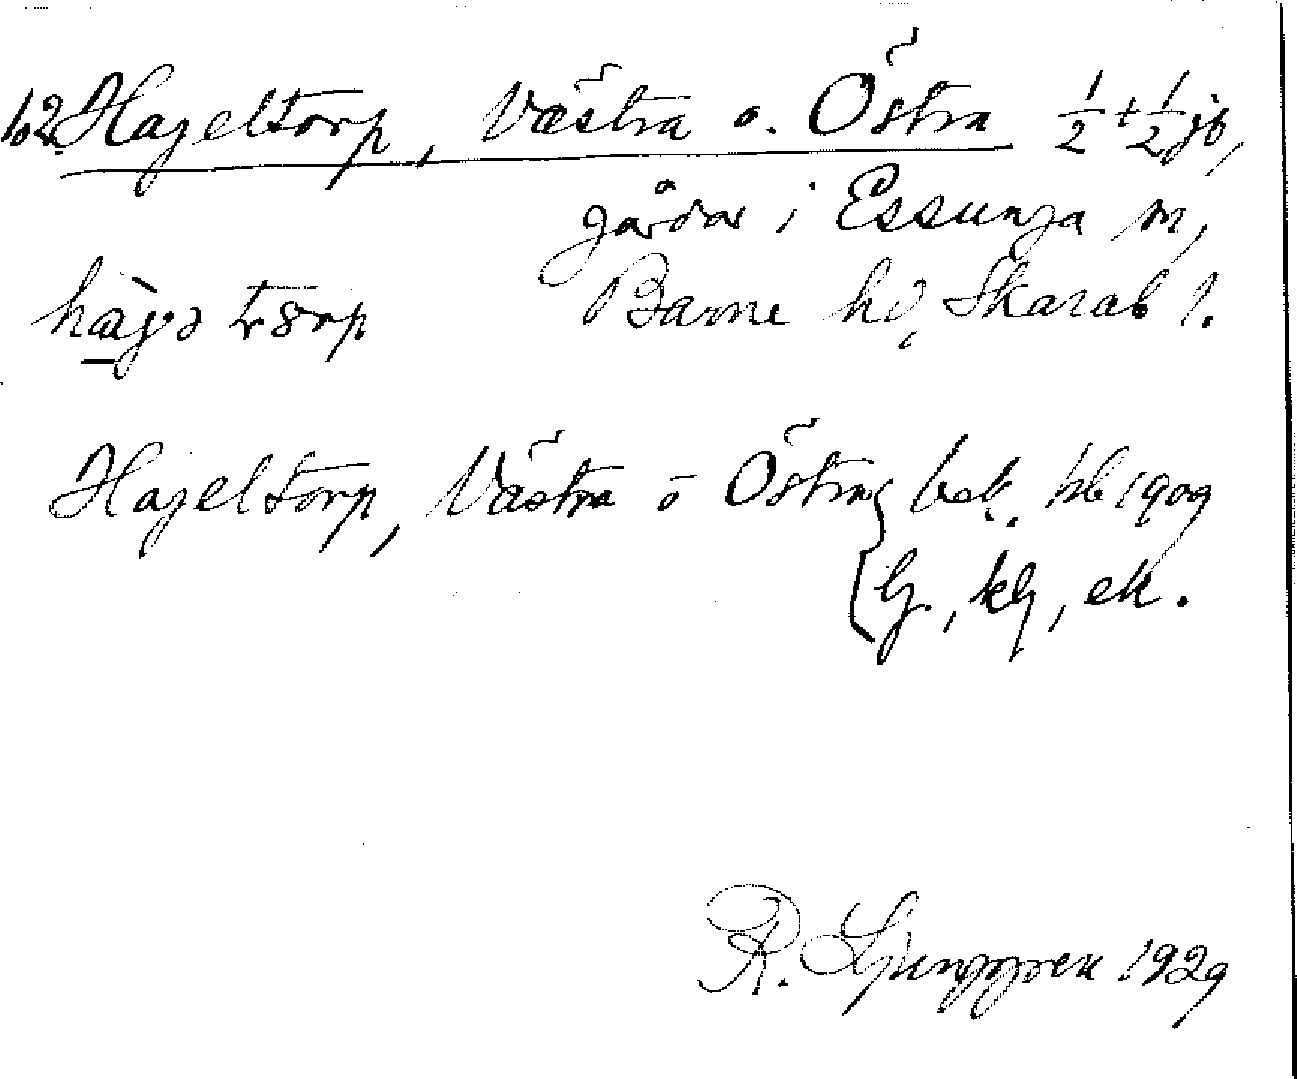 Hageltorp, Västra o. Östra ½ + ½ jb,
gårdar i Essunga sn,
Barne hd, Skarab l.
Hageltorp, Västra o Östra bsk. hb 1909
lj., klj, ek.
R. Ljunggren 1929